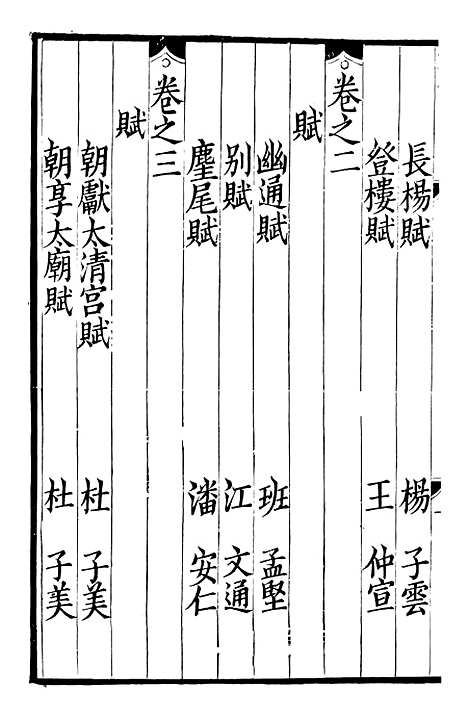 長楊賦　楊　子雲
登樓賦　王　仲宣
卷之二
賦
幽通賦　班　孟堅
別賦　江　文通
麈尾賦　潘　安仁
卷之三
賦
朝獻太清宮賦　杜　子美
朝享太廟賦　杜　子美